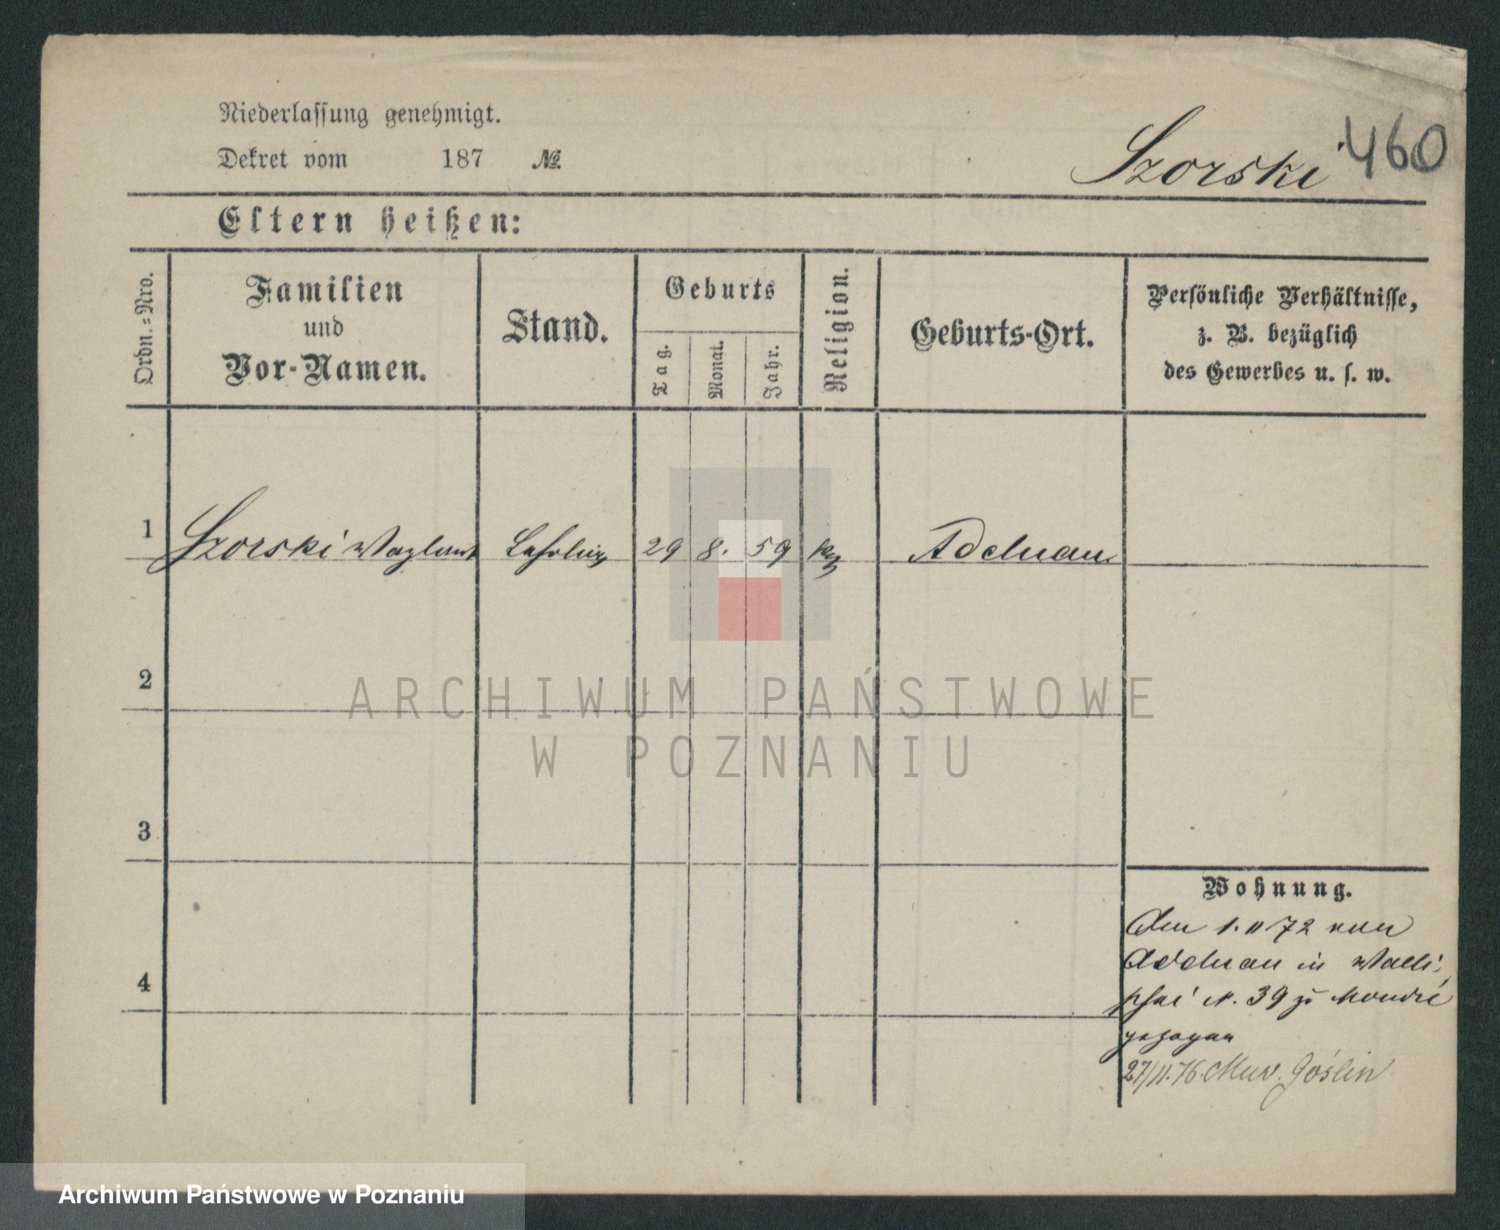 Niederlassung genehmigt.
Dekret vom 187 №
Szorski 460
Eltern heißen:
Ordn.=Nro.
Familien
und
Vor-Namen.
Stand.
Geburts
Tag.
Monat.
Jahr.
Religion.
Geburts-Ort.
Persönliche Verhältnisse,
z. B. bezüglich
des Gewerbes u. s. w.
1 Szorski Lehrling 29 8. 59 Adelnau
2
ARCHIWUM PAŃSTWOWE
W POZNANIU
3
Wohnung.
Am 1. 11 72 von
Adelnau in Walli,
schei N. 39 zu
gezogen
4
27/11.76. Mur. Goślin
Archiwum Państwowe w Poznaniu